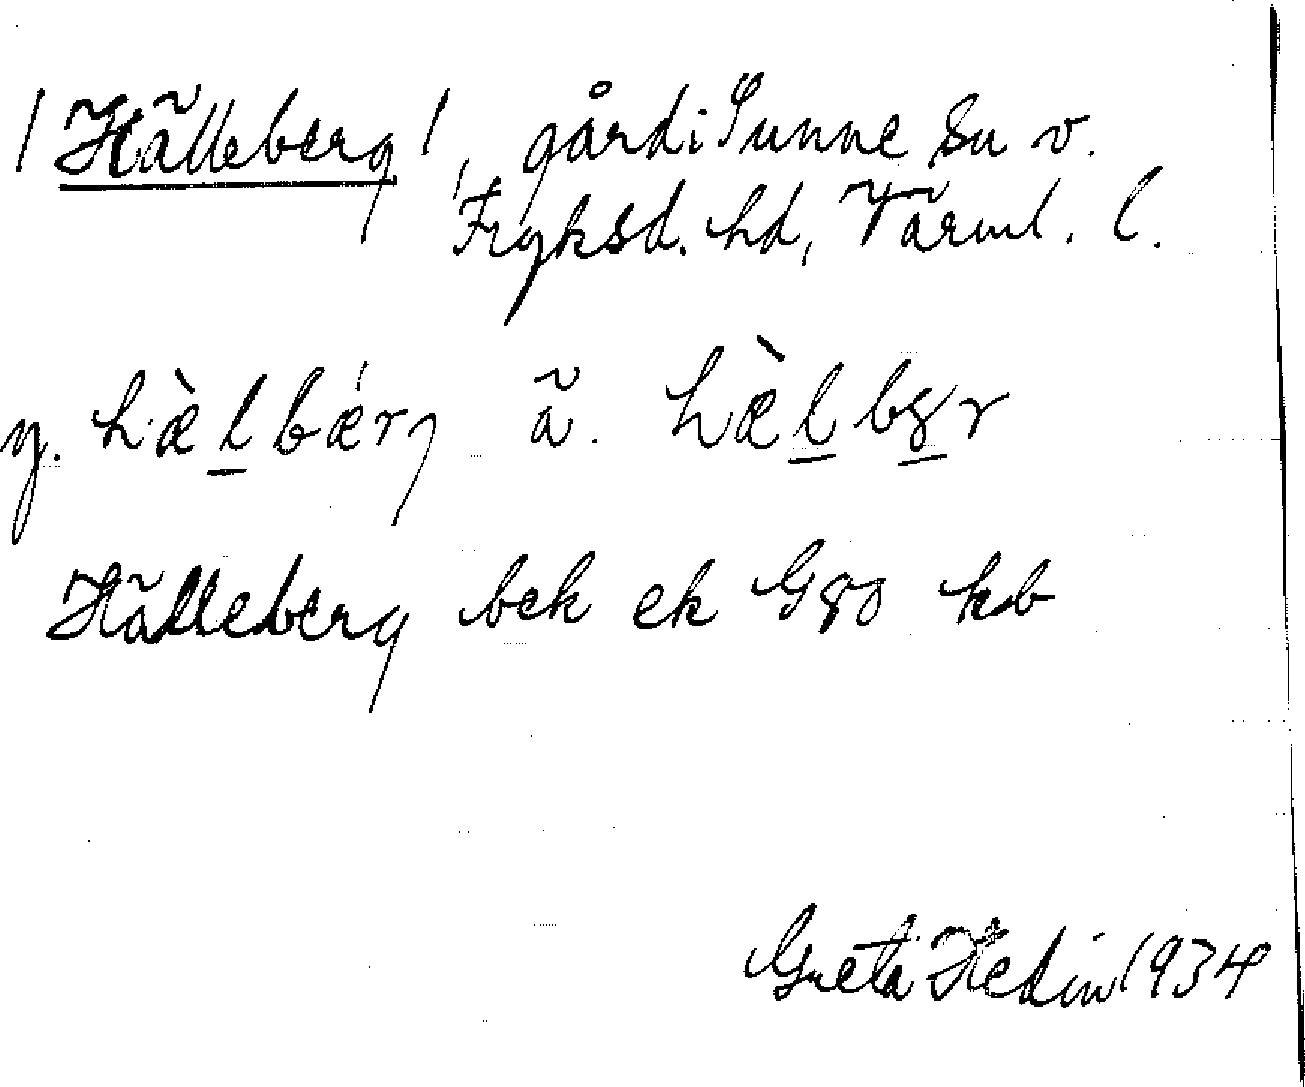 / Hälleberg /, gård i Sunne sn v.
Fryksd. hd, Värml. l.
y. hæ̀l̲bǽrj ä. hæ̀l̲bg̲r
Hälleberg bek ek Ggo kb
Greta Hedin 1934